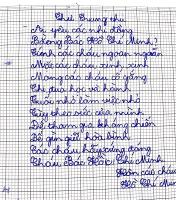 Thư Trung thu
Ai yêu các nhi đồng
Bằng Bác Hồ Chí Minh?
Tính các cháu ngoan ngoãn
Mặt các cháu xinh xinh
Mong các cháu cố gắng
Thi đua học và hành
Tuổi nhỏ làm việc nhỏ
Tùy theo sức của mình
Để tham gia kháng chiến
Để gìn giữ hòa bình
Các cháu hãy xứng đáng
Cháu Bác Hồ Chí Minh
Hôn các cháu
Hồ Chí Minh